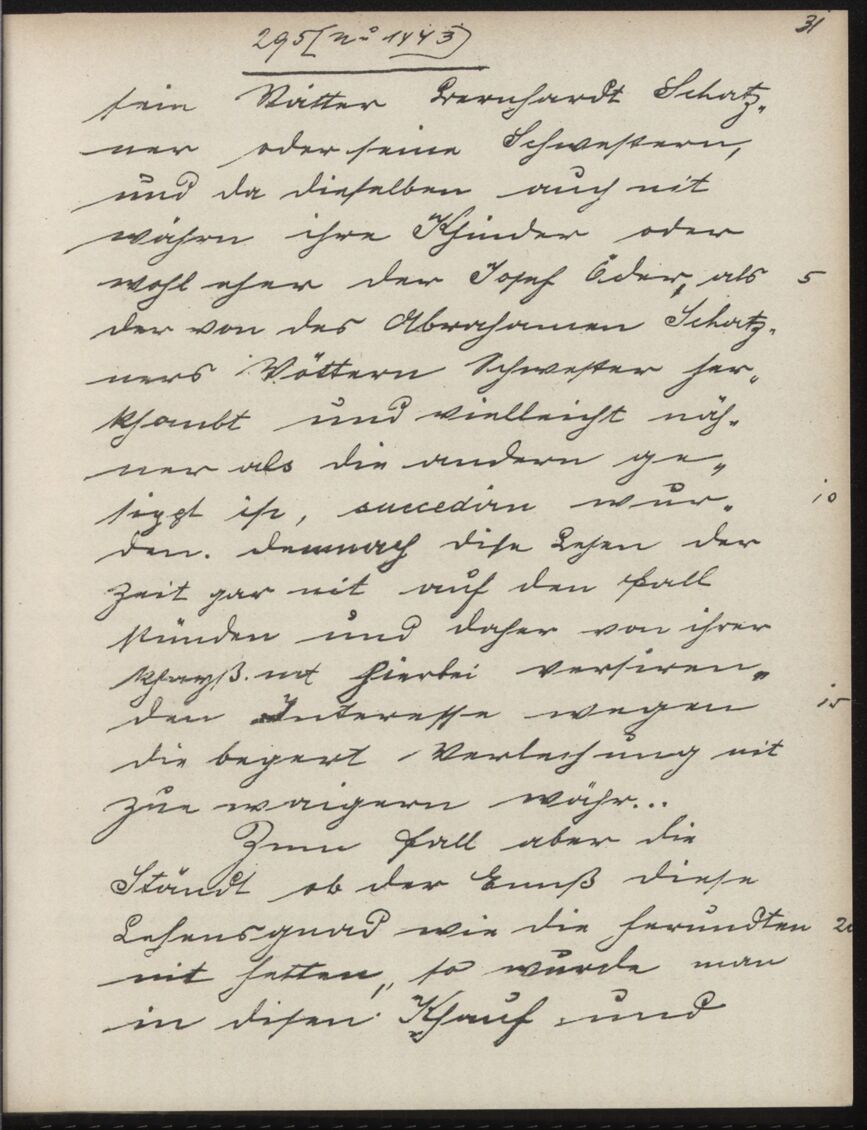 31
295 (No 1443)
sein Vätter Bernhardt Schatz-
ner oder seine Schwestern,
und da dieselben auch nit
währn ihre Khinder oder
wohl eher der Josef Öder, als 5
der von des Abrahamen Schatz-
ners Vöttern Schwester her-
khombt und vielleicht näh-
ner als die andern ge-
sippt ist, succedirn wur- 10
den. demnach dise Lehen der
Zeit gar nit auf den fall
stünden und daher von ihrer
khayß. mt hierbei versiren-
den Interesse wegen 15
die begert Verleihung nit
zue waigern währ...
Zum fall aber die
Ständt ob der Ennß diese
Lehensgnad wie die herundten 20
nit hetten, so wurde man
in disen Khauf und